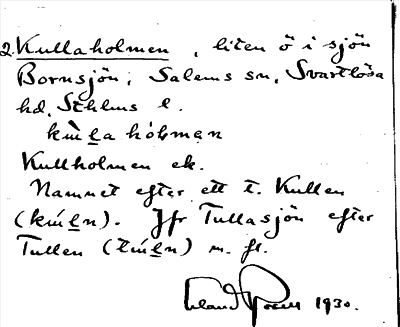 2. Kullaholmen, liten ö i sjön
Bornsjön; Salems sn, Svartlösa
hd, Sthlms l.
kùl̲a hól̲mən
Kullholmen ek.
Namnet efter ett t. Kullen
(kúl̲n). Jfr Tullasjön efter
Tullen (túl̲n) m. fl.
1930.